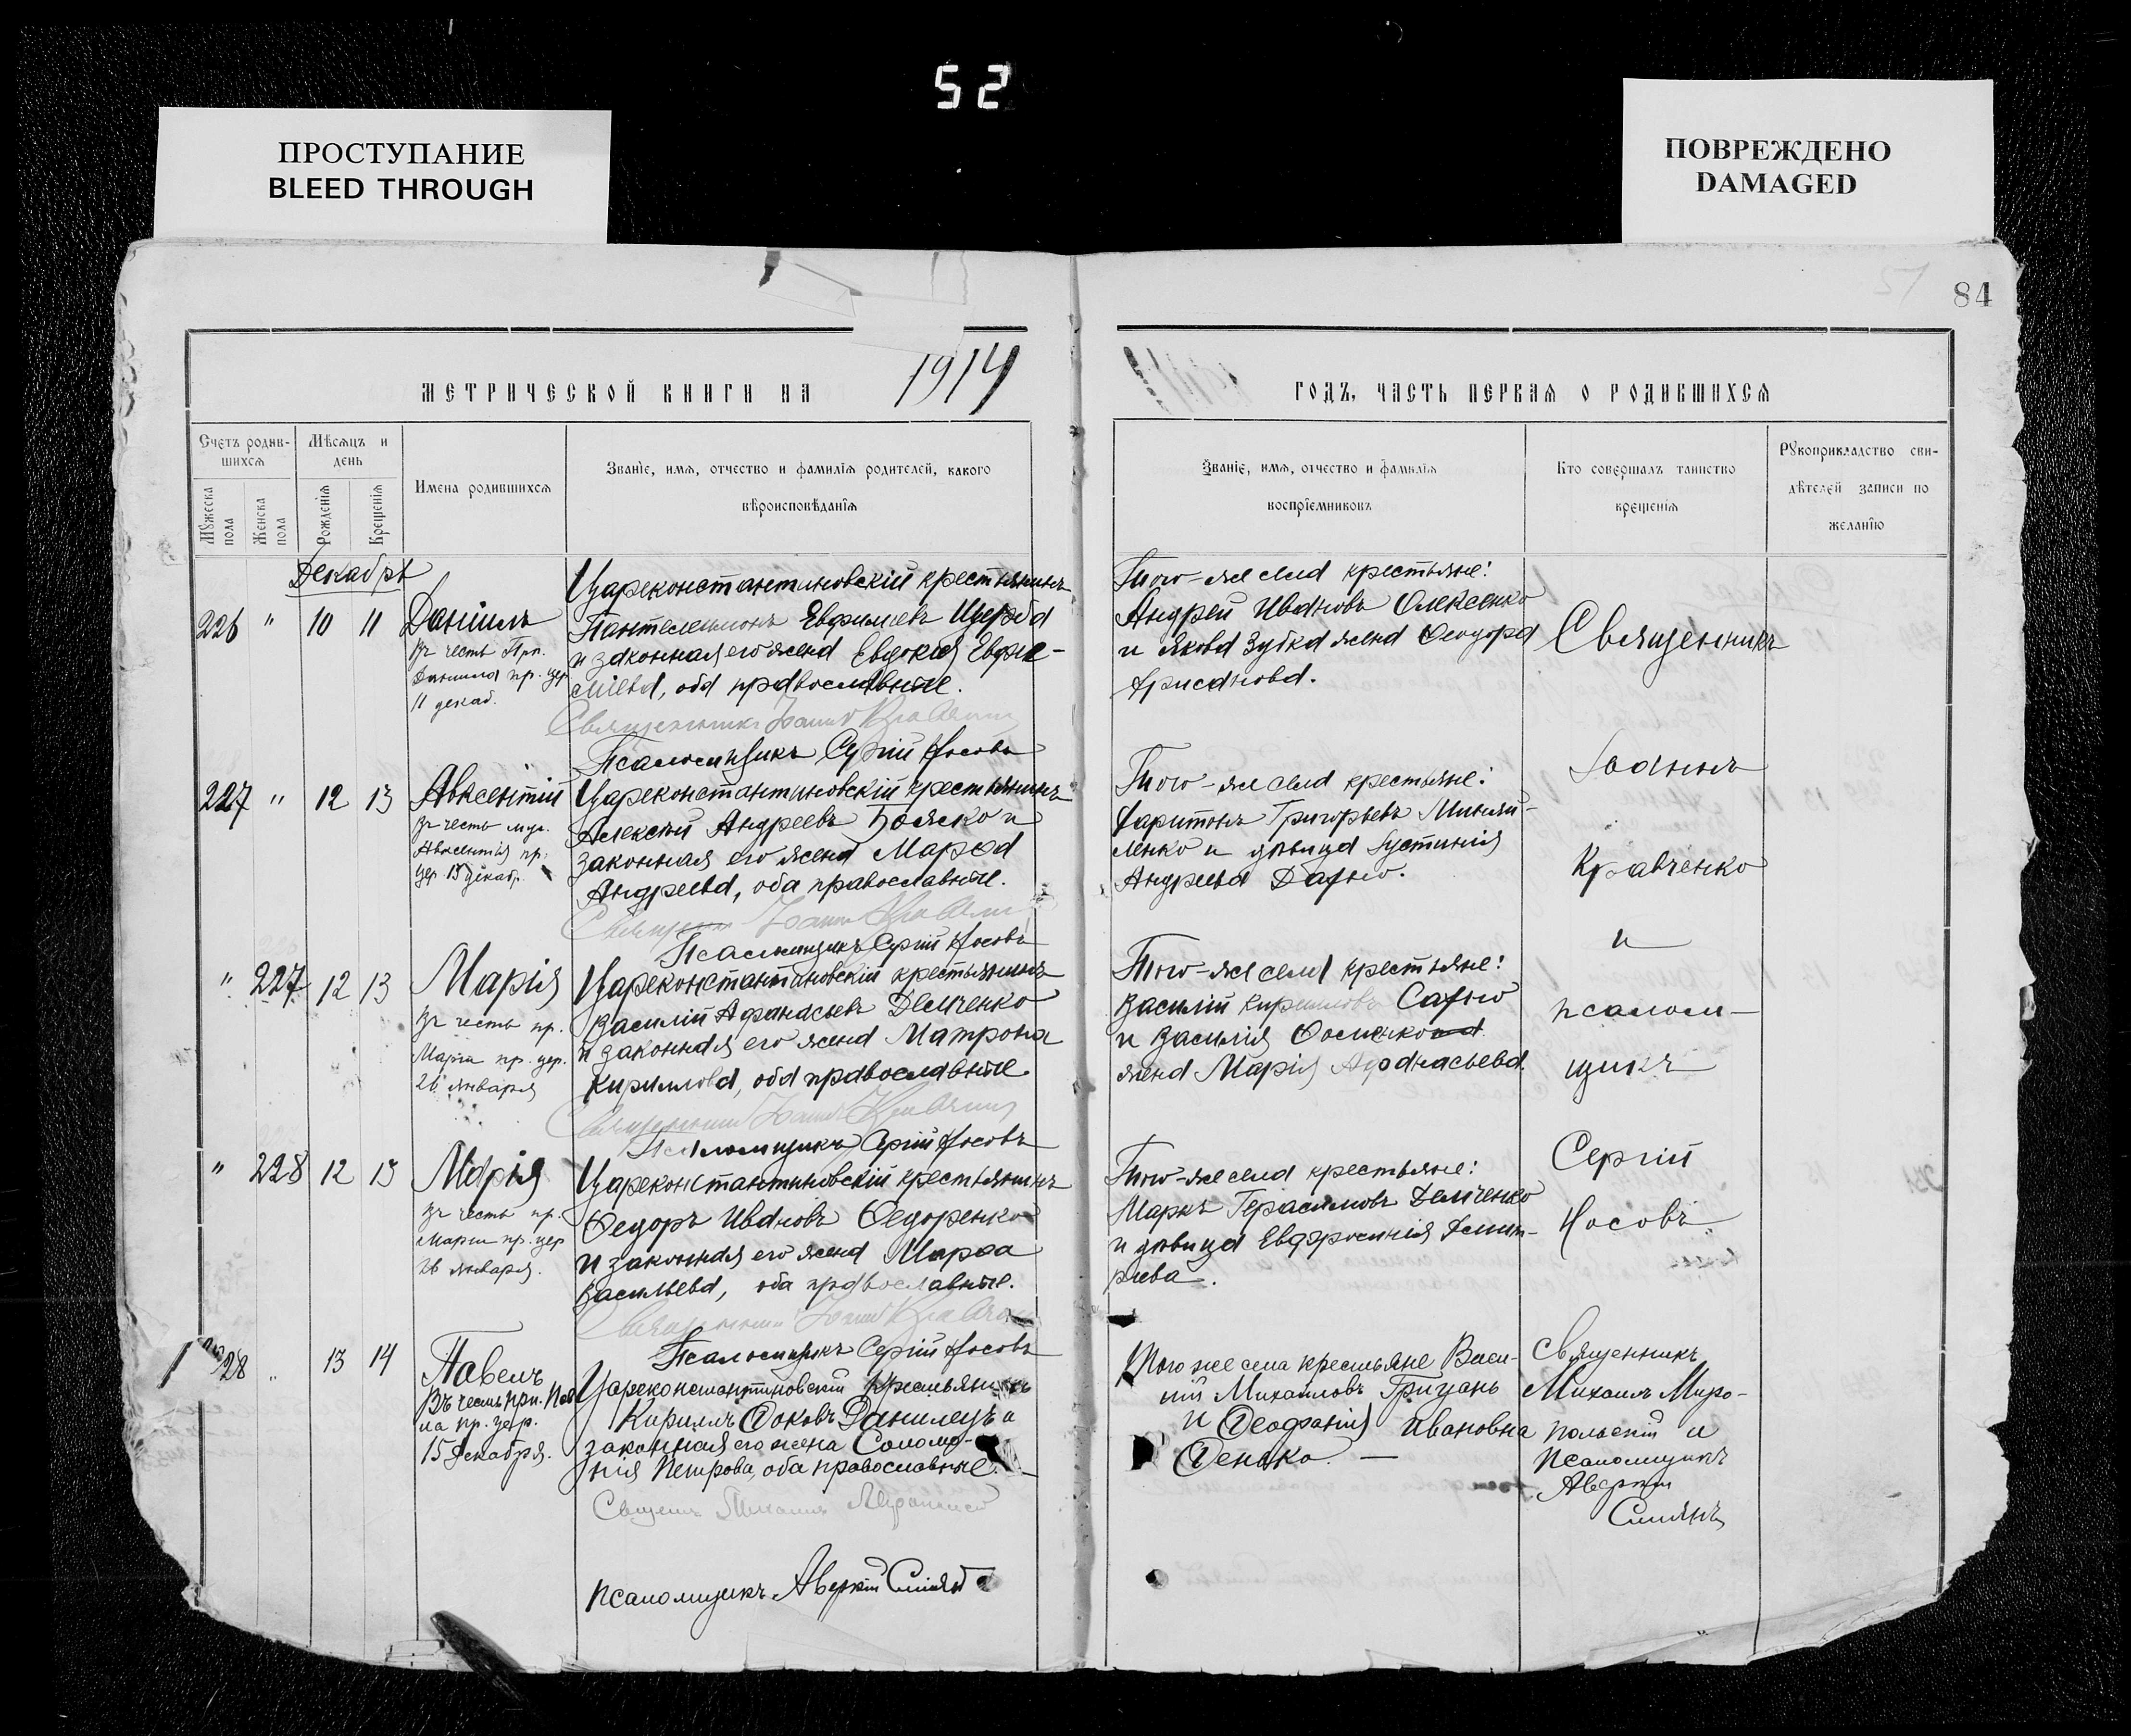 52
ПРОСТУПАНИЕ
BLEED THROUGH
ПОВРЕЖДЕНО
DAMAGED
84
МЕТРИЧЕСКОЙ КНИГИ НА 1914
ГОДЪ, ЧАСТЬ ПЕРВАЯ О РОДИВШИХСЯ
Счетъ родив-
шихся
Мужеска
пола
Женска
пола
Мѣсяцъ и
день
Рожденія
Крещенія
Имена родившихся
Званіе, имя, отчество и фамилія родителей, какого
вѣроисповѣданія
Званіе, имя, отчество и фамилія
воспріемниковъ
Кто совершалъ таинство
крещенія
Рукоприкладство сви-
дѣтелей записи по
желанію
Декабрь
226 " 10 11
Даніилъ
Въ честь Прп.
Даніила пр. цер.
11 декаб.
Цареконстантиновскій крестьянинъ
Пантелеимонъ Евфиміевъ Щерба
и законная его жена Евдокія Евфи-
міева, оба православные.
Священникъ Іоаннъ Кравченко
Псаломщикъ Сергій Носовъ
Того-же села крестьяне:
Андрей Ивановъ Олексенко
и Якова Зубка жена Ѳеодора
227 " 12 13
Авксентій
Въ честь муч.
Авксентія пр.
цер. 13 декабр.
Цареконстантиновскій крестьянинъ
Алексѣй Андреевъ Божко и
законная его жена Марѳа
Андреева, оба православные.
Псаломщикъ Сергій Носовъ
Того-же села крестьяне:
Харитонъ Григорьевъ
и дѣвица Іустинія
Андреева
" 227 12 13
Марія
Въ честь пр.
Маріи пр. цер.
26 января
Цареконстантиновскій крестьянинъ
Василій Афанасьевъ Демченко
и законная его жена Матрона
Кириллова, оба православные.
Псаломщикъ Сергій Носовъ
Того-же села крестьяне:
Василій Кирилловъ
и Василія
жена Марія Афанасьева.
" 228 12 13
Марія
Въ честь пр.
Маріи пр. цер.
26 января.
Цареконстантиновскій крестьянинъ
Ѳедоръ Ивановъ Ѳедоренко
и законная его жена Марѳа
Васильева, оба православные.
Псаломщикъ Сергій Носовъ
Того-же села крестьяне:
Маркъ Герасимовъ Демченко
и дѣвица Евфросинія Дмит-
ріева.
Священникъ
Іоаннъ
Кравченко
и
псалом-
щикъ
Сергій
Носовъ.
228 " 13 14
Павелъ
Въ честь прп. Пав
ла пр. цер.
15 декабря.
Цареконстантиновскій крестьянинъ
Кириллъ Ѳоковъ Данилецъ и
законная его жена Соломо-
нія Петрова, оба православные.
псаломщикъ Аверкій
Того же села крестьяне Васи-
лій Михаиловъ Грицань
и Ѳеофанія Ивановна
Ѳенько. —
Священникъ
Михаилъ Миро-
польскій и
псаломщикъ
Аверкій